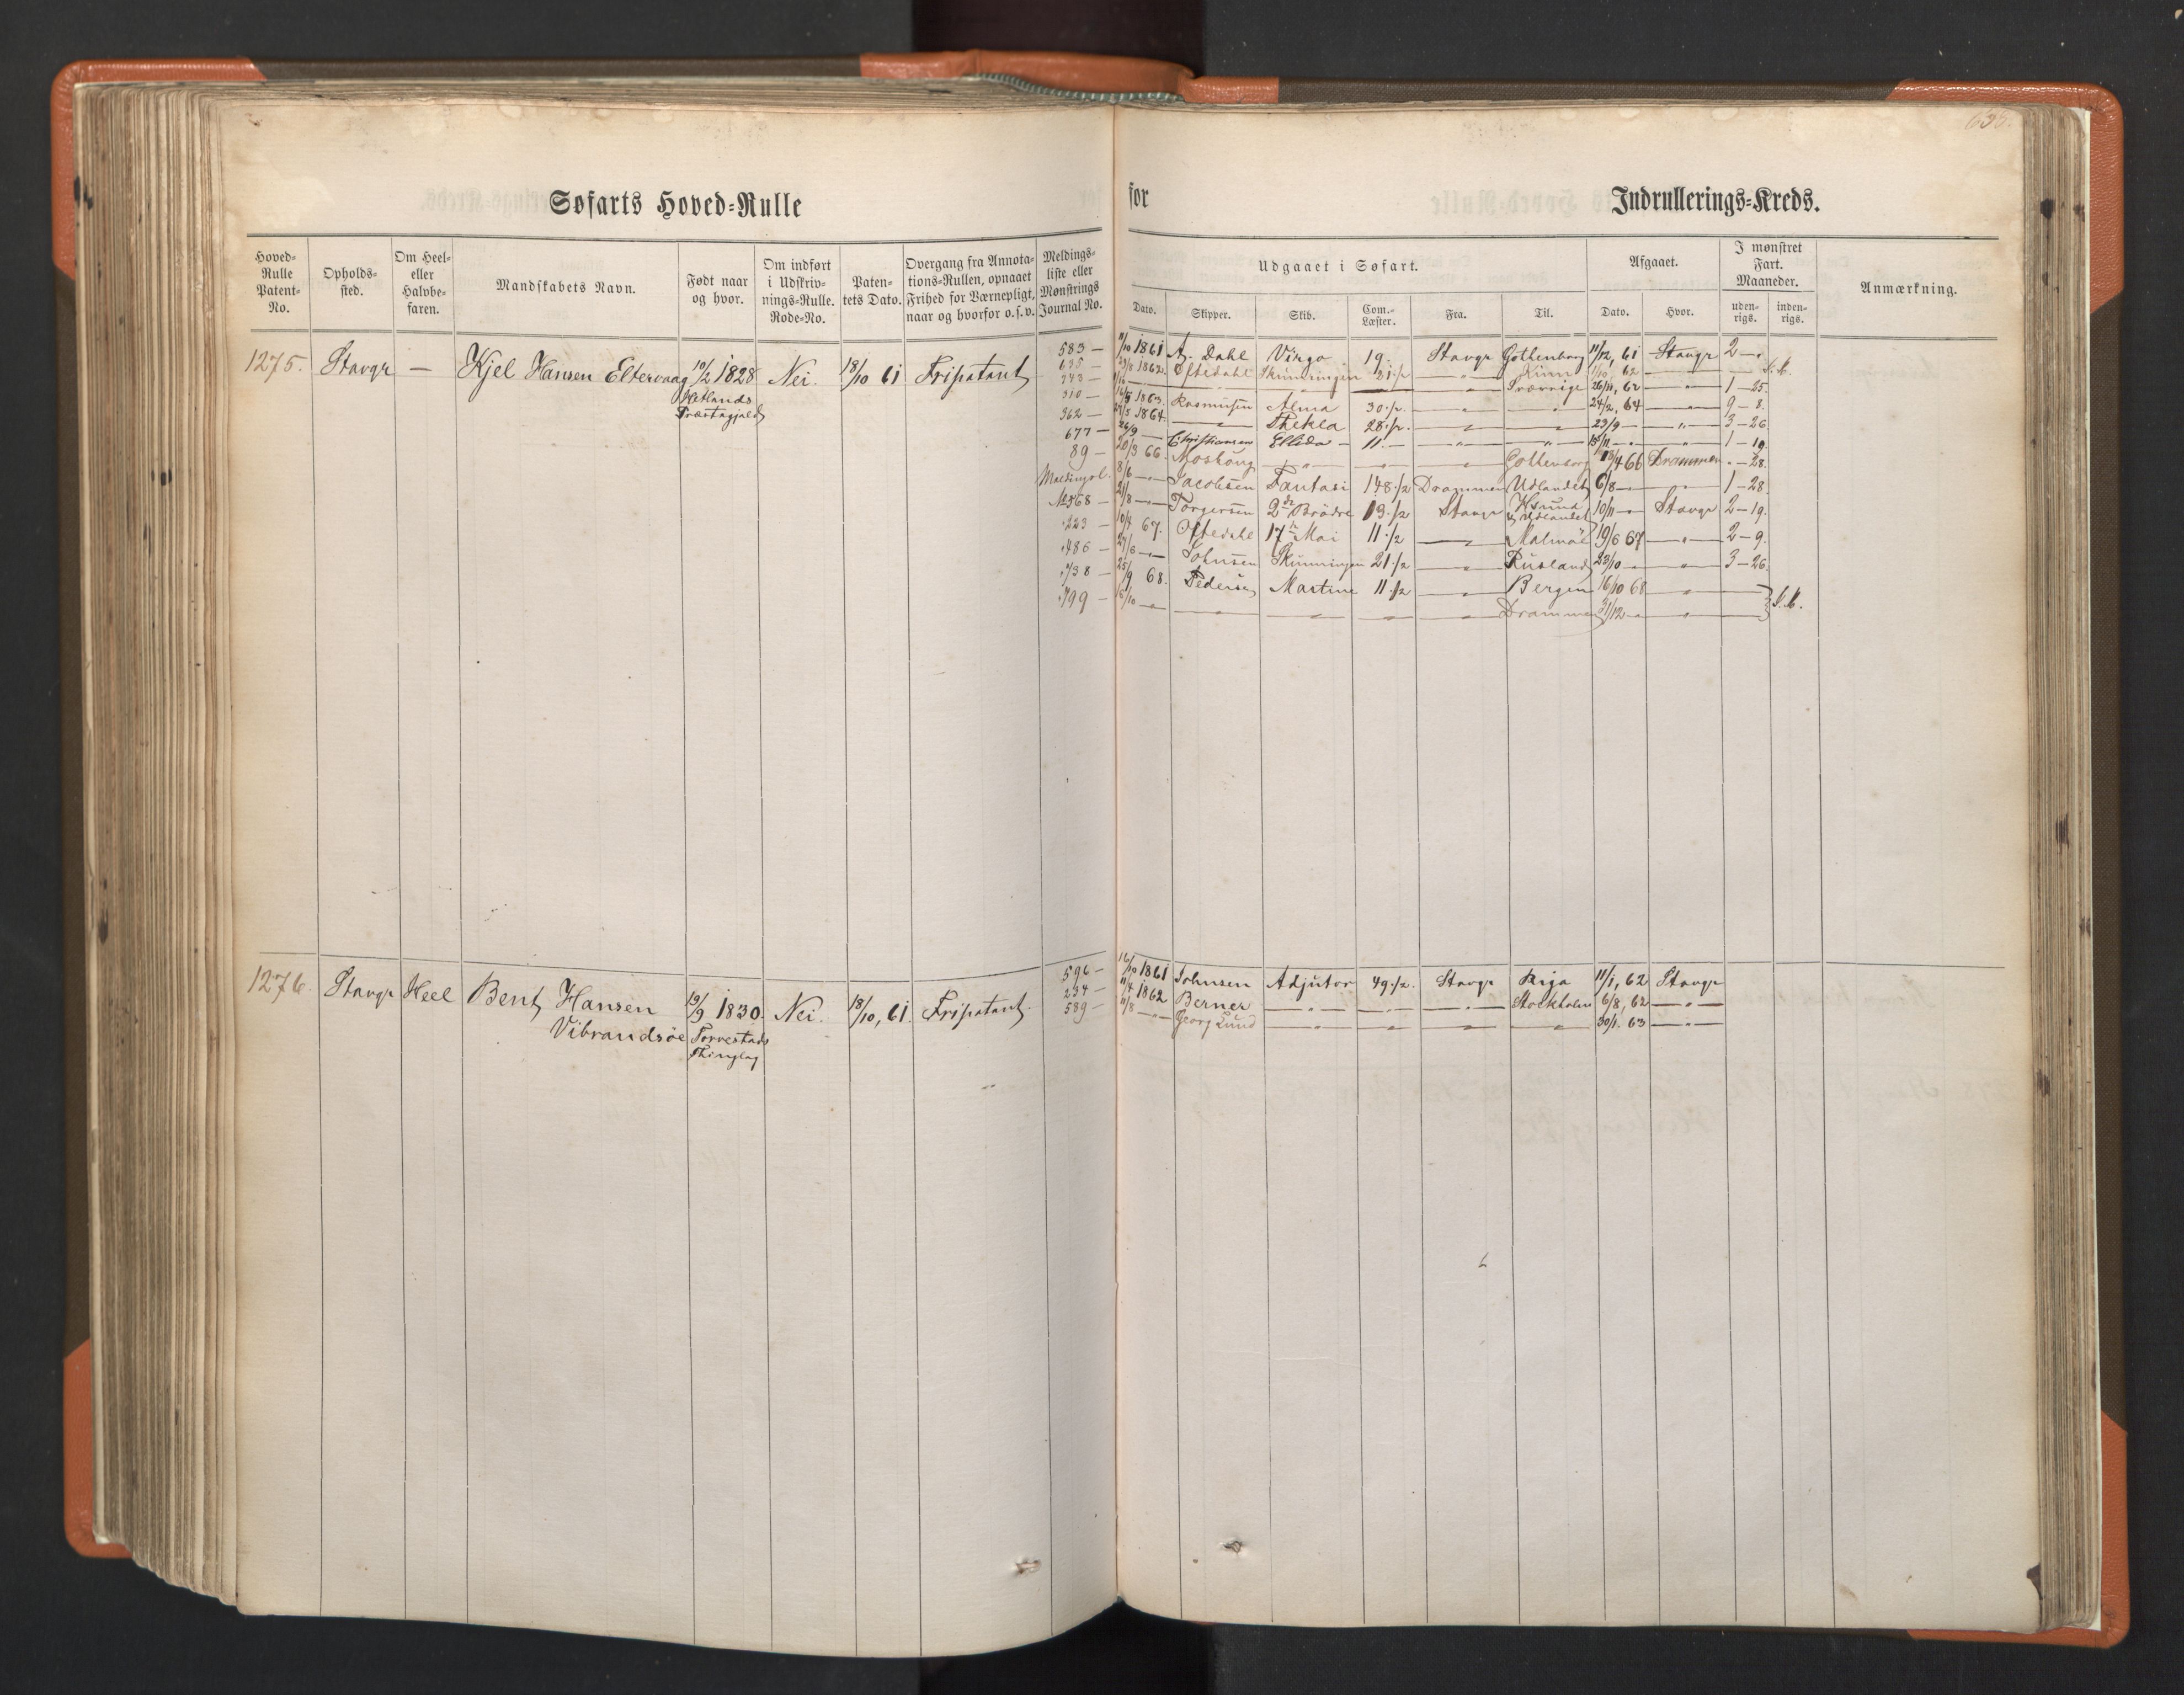 638.
Søfarts Hoved-Rulle for Indrullerings-Kreds.
Hoved-Rulle Patent-No. Opholds-sted. Om Heel- eller Halvbe-faren. Mandskabets Navn. Født naar og hvor. Om indført i Udskriv-nings-Rulle. Rode-No. Paten-tets Dato. Overgang fra Annota-tions-Rullen, opnaaet Frihed for Værnepligt, naar og hvorfor o.s.v. Meldings-liste eller Mønstrings Journal No.
Udgaaet i Søfart. Afgaaet. I mønstret Fart. Maaneder. Anmærkning.
Dato. Skipper. Skib. Com.-Læster. Fra. Til. Dato. Hvor. uden-rigs. inden-rigs.
1275. Stavgr — Kjel Hansen Eltervaag 10/2 1828 Nei. 18/10 61 Fripatent
Hetlands
Præstegjeld
583 — 11/10 1861 A. Dahl Virgo 19. Stavgr Gothenborg 11/12, 61 Stavgr 2 —
635 — 29/8 1862. Oftedahl Skunningen 21 1/2 — " — Kinn 1/10, 62 —
743 — — " — Sverrige 26/11, 62 — " — 1 — 25.
310 — 16/5 1863. Rasmusen Alma 30 1/2. — " — — " — 24/2, 64 — " — 9 — 8.
362 — 27/5 1864. — " — Thekla 28 1/2. — " — — " — 23/9 — — " — 3 — 26
677 — 26/9 — Christiansen Ellida — 11. — — " — — " — 15/11 — " — — " — 1 — 19.
89 — 20/3 66. — " — Gothenborg 18/4 66 Drammen " — 28.
Meldingsl. 8/6 — " — Jacobsen Fantasi 148 1/2 Drammen Udlandet 6/8 — " — — " — 1 — 28.
No 568 — 21/8 — " — Torgersen 2de Brødre 13 1/2 Stavgr Ksund & Udlandet 10/11 — " — Stavgr 2 — 19.
" 223 — 10/4 67. Oftedahl 17de Mai 11 1/2 — " — Malmøe 19/6 67 — " — 2 — 9.
" 486 — 27/6 — " — Johnsen Skunningen 21 1/2 — " — Rusland 23/10 — " — — " — 3 — 26.
" 738 — 25/9 68. Pedersen Martine 11 1/2 — " — Bergen 16/10 68 — " —
" 799 — 16/10 — " — — " — — " — — " — — " — Drammen 31/12 — " — — " —
1276. Stavgr Heel Bent Hansen 19/9 1830. Nei. 18/10, 61. Fripatent.
Vibrandsöe Torvestads
Thinglag
596 — 16/10 1861 Johnsen Adjutor 49 1/2. Stavgr Riga 11/1, 62 Stavgr
234 — 11/4 1862 Berner — " — — " — — " — Stockholm 6/8, 62 — " —
589 — 11/8 — " — Georg Lund — " — — " — — " — — " — 30/1. 63 — " —